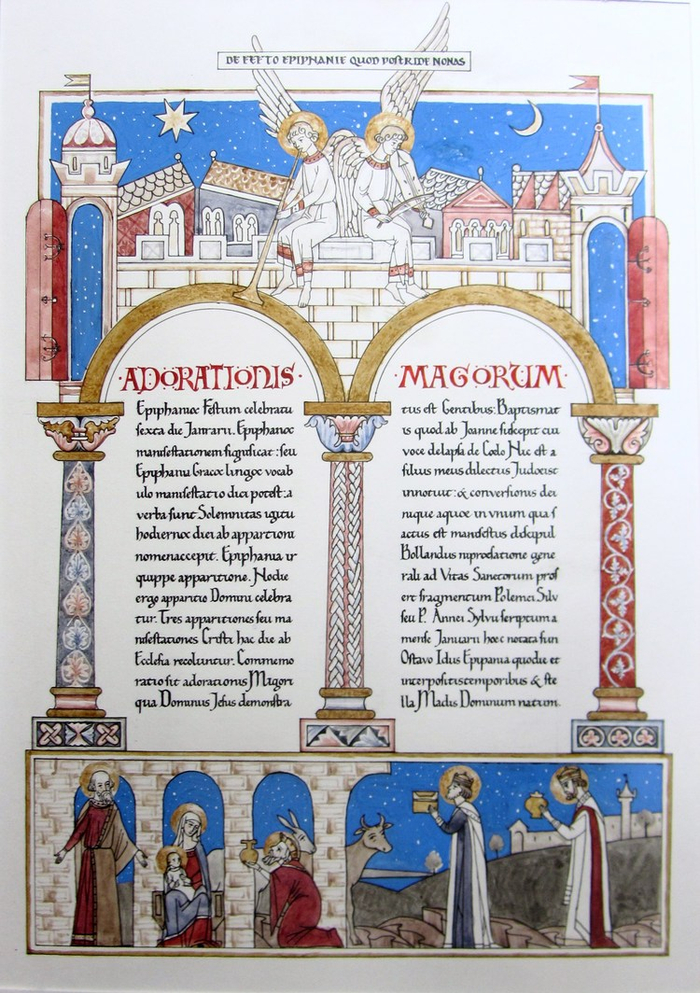 DE FEFTO EPIPHANIE QUOD POSTRIDE NONAS
·ADORATIONIS·
Epiphaniæ Festum celebratu
sexta die Janrarii. Epiphanæ
manifestationem significat: seu
Epiphania Græca linguæ vocab
ulo manifestatio dici potest: a
verba sunt Solemnitas igitu
hodiernæ diei ab apparitioni
nomenaccepit. Epiphania ir
quippe apparitione. Hodie
ergo apparitio Domini celebra
tur. Tres apparitiones seu ma
nifestationes Cristi hac die ab
Ecclesia recoluntur. Commemo
ratio fit adorationis Magori
qua Dominus Jesus demonstra
·MAGORUM·
tus est Gentibus: Baptismat
is quod ab Joanne suscepit cu
voce delapsa de Coelo Hic est a
filius meus dilectus Judæist
innotuit: & conversionis dei
nique aquæ in vinum qua f
actus est manifestus discipul
Bollandus in prolatione gene
rali ad Vitas Sanctorum prof
ert fragmentum Polemei Silv
seu P. Annei Sylvii scriptum a
mense Januarii hæc notata sun
Octavo Idus Epipania quo die et
interpositis temporibus & ste
lla Madis Dominum natum.